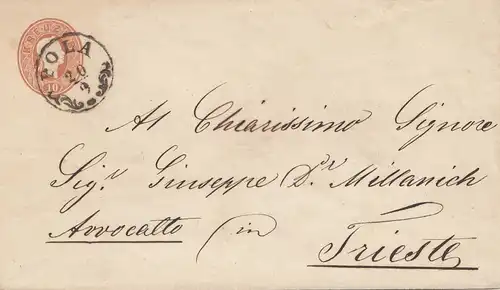 KREUZER
POLA
20
9
10
Al Chiarissimo Signore
Sig.r Giuseppe D.r Millanich
Avvocatto in
Trieste